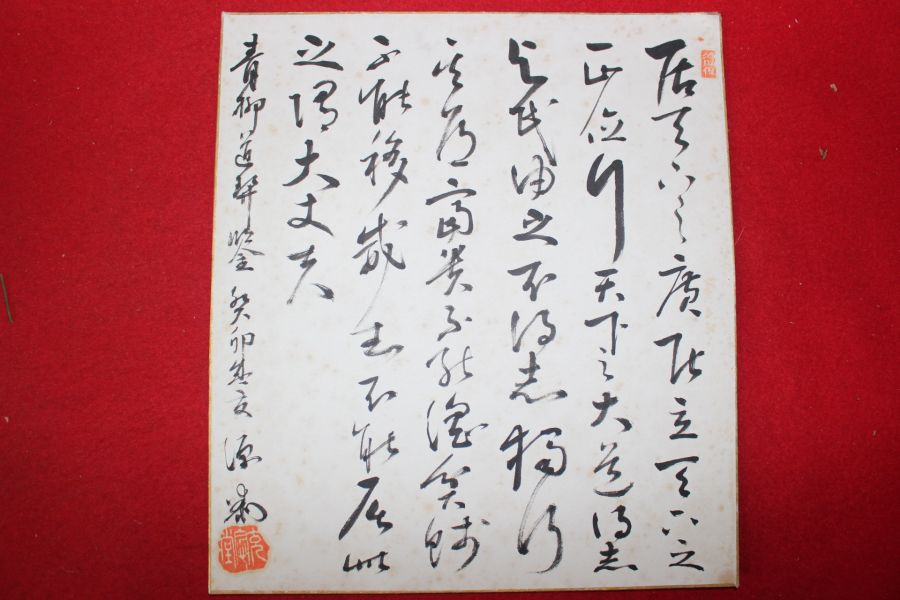 居天下之廣居立天下之
正位行天下之大道得志
与民由之不得志獨行
其道富貴不能淫貧賤
不能移威武不能屈此
之謂大丈夫
青柳道契鑒 癸卯 源